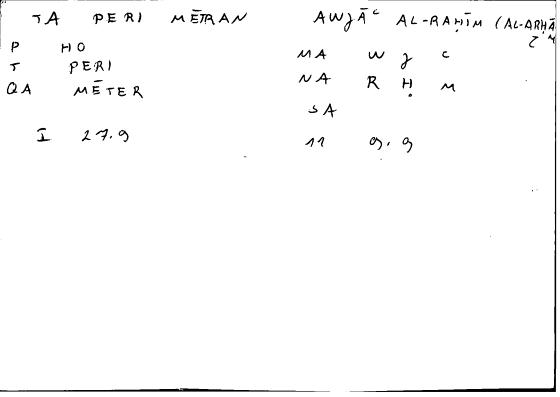 TA PERI MĒTRAN AWJĀʿ AL-RAḤĪM (AL-ARḤĀM
P HO MA W J ʿ
T PERI NA R Ḥ M
QA MĒTER SA
I 27.9 11 9.9